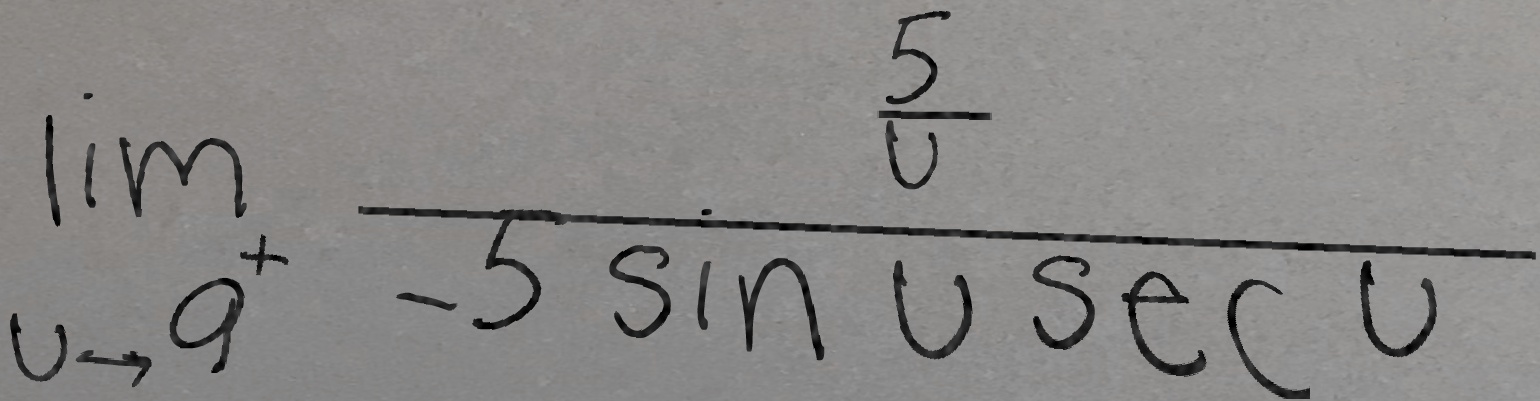 \lim_{u \to 9^+} \frac{\frac{5}{u}}{-5 \sin u \sec u}